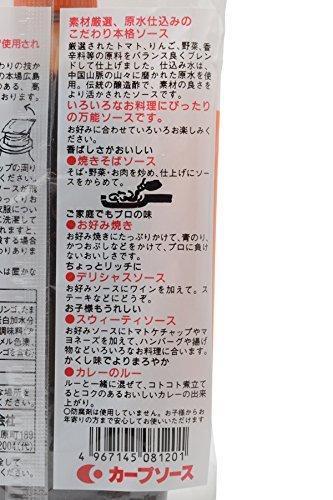 素材厳選、原水仕込みの
こだわり本格ソース
厳選されたトマト、りんご、野菜、香
辛料等の原料をバランス良くブレ
ンドして仕上げました。仕込み水は、
中国山脈の山々に磨かれた原水を使
用。伝統の醸造酢で、素材の良さを
より活かされたソースです。
いろいろなお料理にぴったり
の万能ソースです。
お好みに合わせていろいろお楽しみくだ
さい。
香ばしさがおいしい
●焼きそばソース
そば・野菜・お肉を炒め、仕上げにソー
スをからめて。
ご家庭でもプロの味
●お好み焼き
お好み焼きにたっぷりかけて、青のり、
かつおぶしなどをかけて、プロに負け
ないおいしさです。
ちょっとリッチに
●デリシャスソース
お好みソースにワインを加えて。ス
テーキなどにどうぞ。
お子様もうれしい
●スウィーティソース
お好みソースにトマトケチャップやマ
ヨネーズを加えて、ハンバーグや揚げ
物などいろいろなお料理に合います。
かくし味でよりまろやか
●カレーのルー
ルーと一緒に混ぜて、コトコト煮立て
るとコクのあるおいしいカレーの出
来上がり。
○防腐剤は使用していません。お子様からお
年寄りの方まで安心してお使いいただけます。
4 967145 081201
カープソース